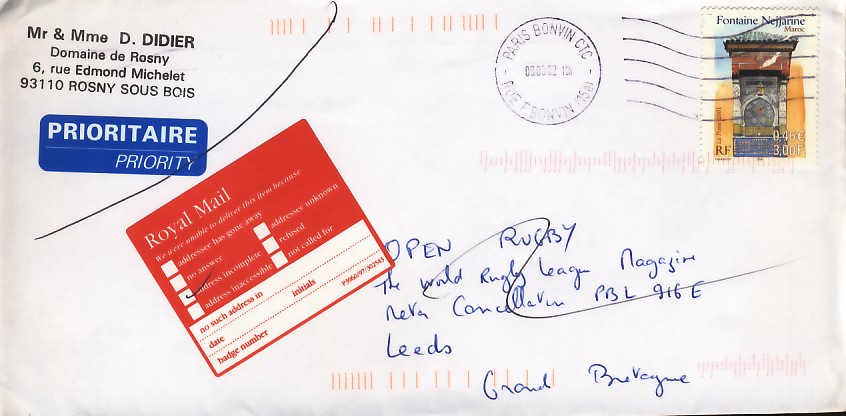 Mr & Mme D. DIDIER
Domaine de Rosny
6, rue Edmond Michelet
93110 ROSNY SOUS BOIS
PRIORITAIRE
PRIORITY
PARIS BONVIN CTC
RUE F BONVIN (15e)
Fontaine Nejjarine
Maroc
0,46€
3,00F
RF
La Poste
Royal Mail
We were unable to deliver this item because
addressee has gone away
addressee unknown
no answer
refused
address incomplete
not called for
address inaccessible
no such address in
initials
date
badge number
P3966/97/302543
OPEN RUGBY
The World Rugby League Magazine
PBL 916 E
Leeds
Grand Bretagne